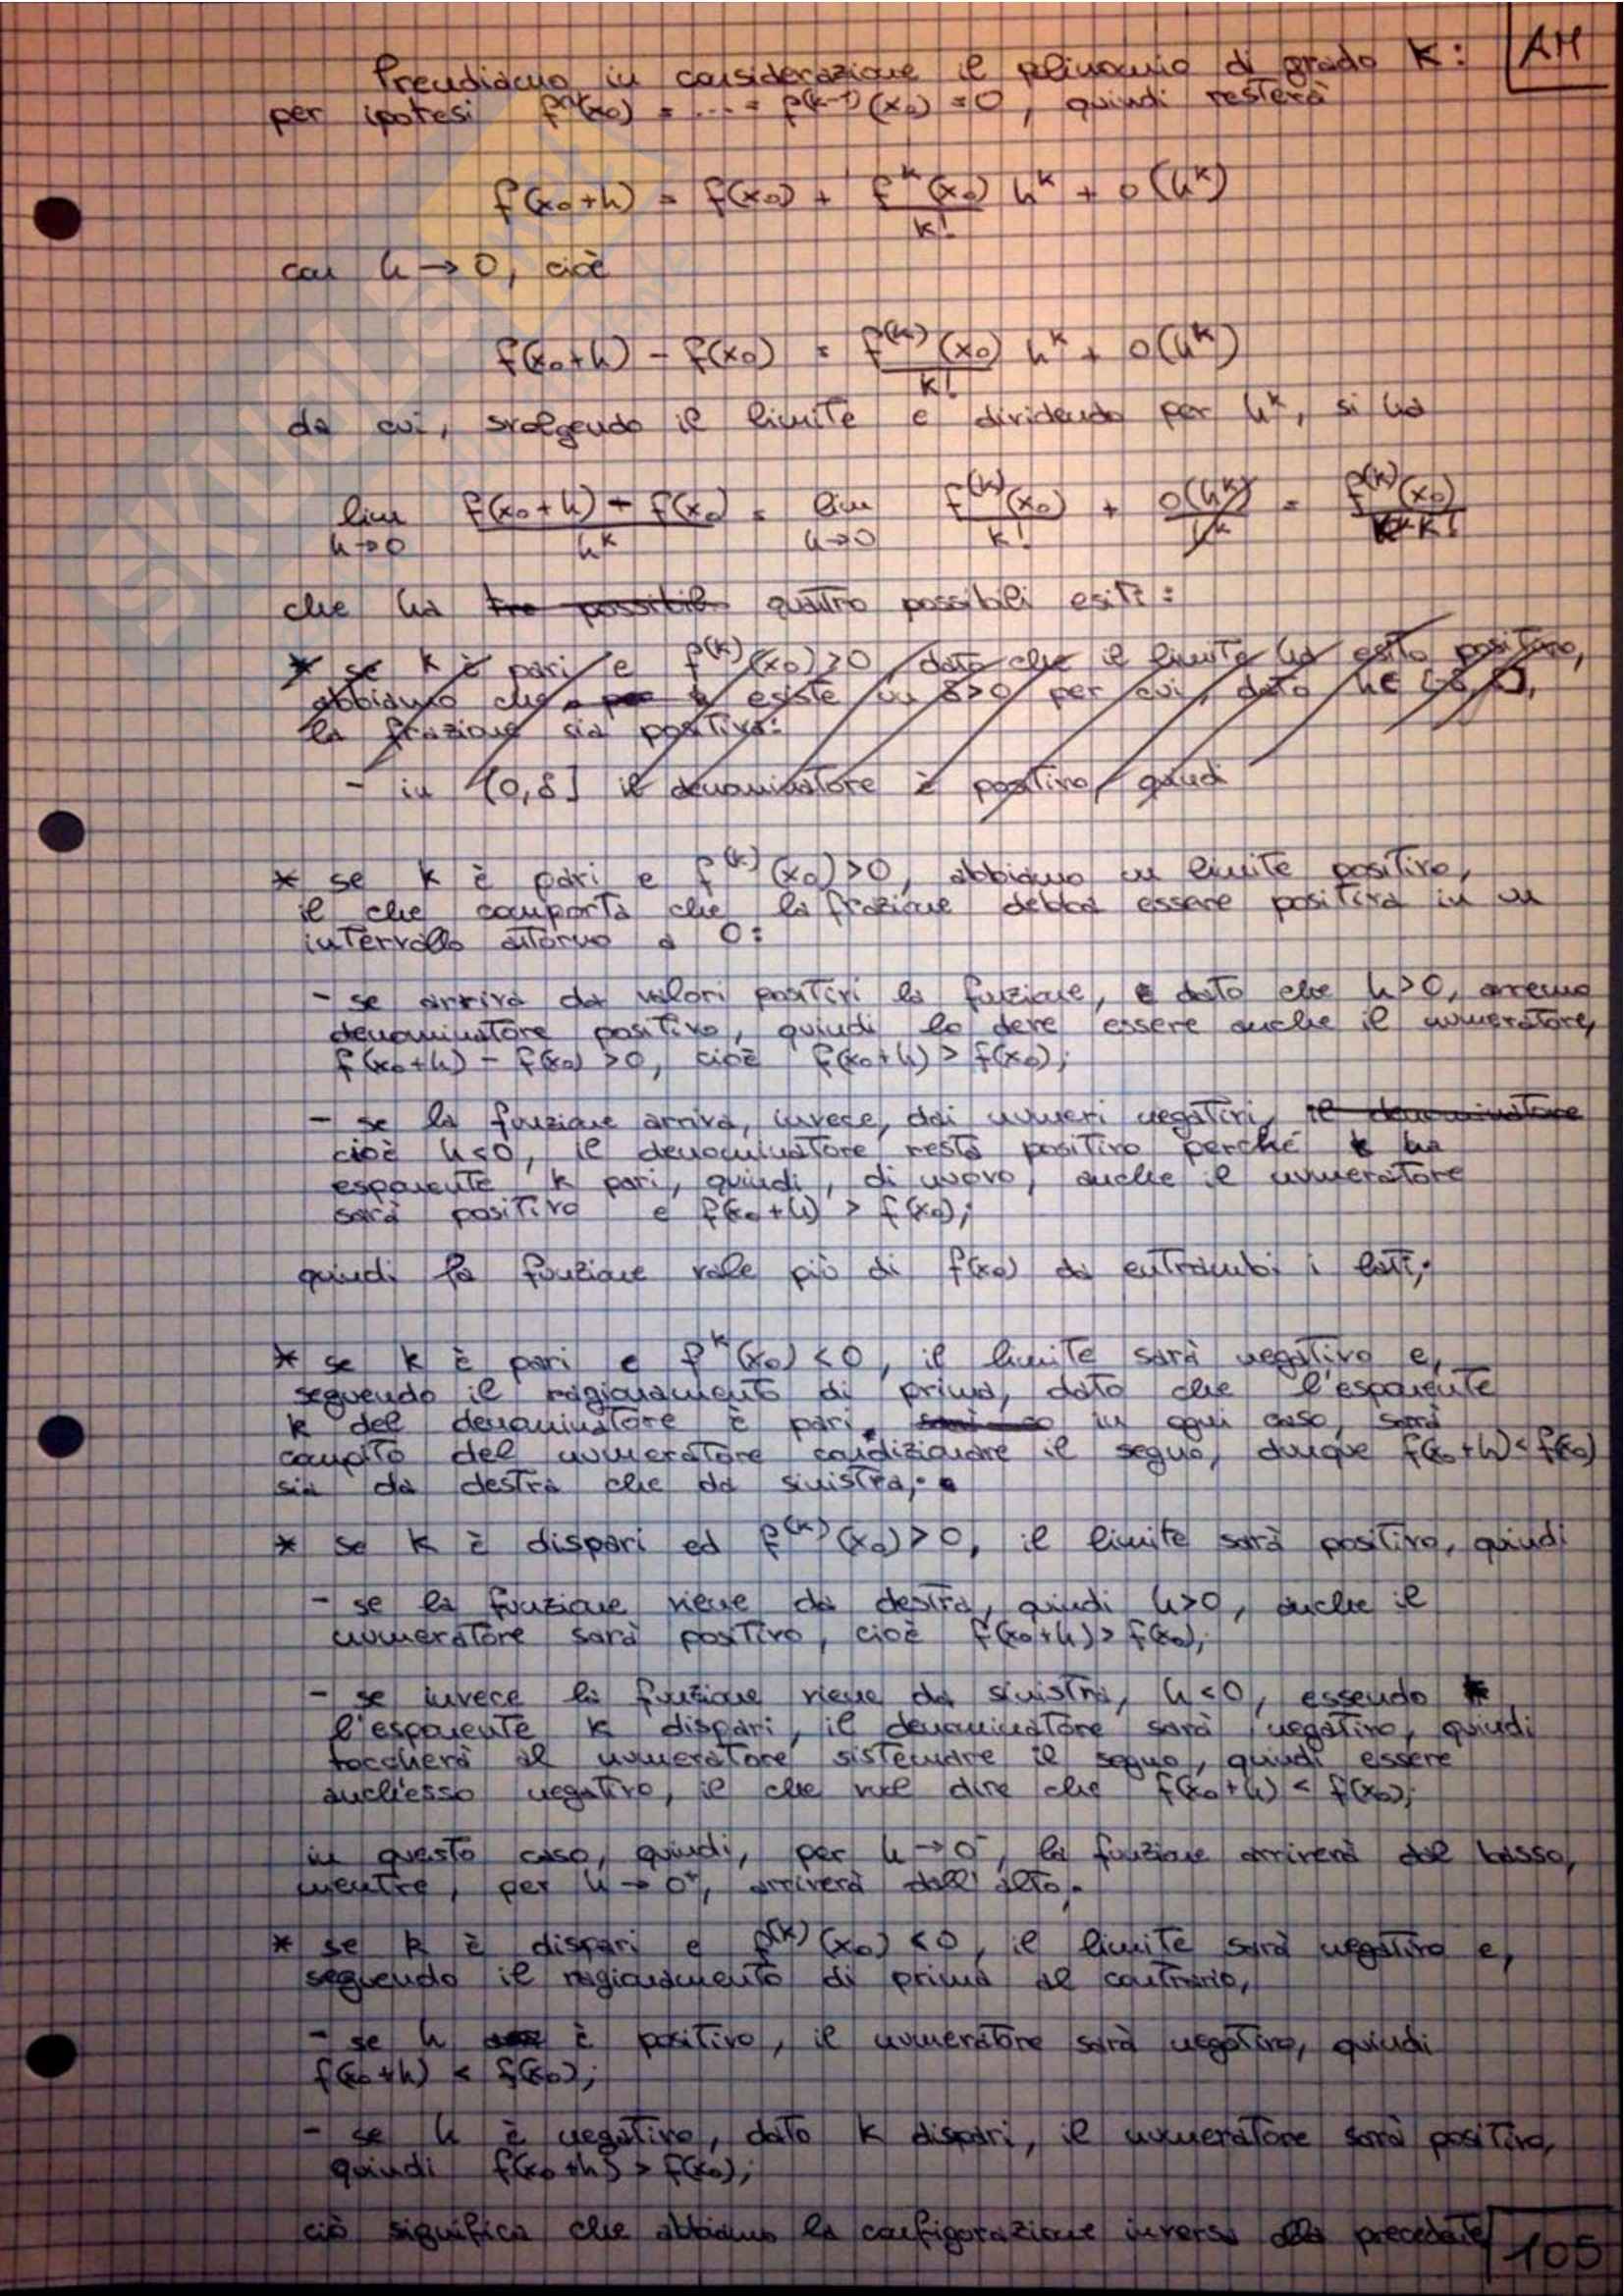 Prendiamo in considerazione il polinomio di grado K: AM
per ipotesi f'(x₀) = ... = f^(k-1)(x₀) = 0, quindi resterà
f(x₀+h) = f(x₀) + f^k(x₀)/k! h^k + o(h^k)
con h → 0, cioè
f(x₀+h) - f(x₀) = f^(k)(x₀)/k! h^k + o(h^k)
da cui, svolgendo il limite e dividendo per h^k, si ha
lim h→0 f(x₀+h) - f(x₀)/h^k = lim h→0 f^(k)(x₀)/k! + o(h^k)/h^k = f^(k)(x₀)/k!
che ha tre possibili quattro possibili esiti:
* se k è pari e f^(k)(x₀)>0, dato che il limite ha esito positivo,
abbiamo che esiste un δ>0 per cui, dato h∈
la frazione sia positiva:
- in (0,δ] il denominatore è positivo, quindi
* se k è pari e f^(k)(x₀)>0, abbiamo un limite positivo,
il che comporta che la frazione debba essere positiva in un
intervallo attorno a 0:
- se arriva da valori positivi la funzione, e dato che h>0, avremo
denominatore positivo, quindi lo deve essere anche il numeratore,
f(x₀+h) - f(x₀) >0, cioè f(x₀+h) > f(x₀);
- se la funzione arriva, invece, dai numeri negativi, il denominatore
cioè h<0, il denominatore resta positivo perché ha
esponente k pari, quindi, di nuovo, anche il numeratore
sarà positivo e f(x₀+h) > f(x₀);
quindi la funzione vale più di f(x₀) da entrambi i lati;
* se k è pari e f^k(x₀) <0, il limite sarà negativo e,
seguendo il ragionamento di prima, dato che l'esponente
k del denominatore è pari, in ogni caso, sarà
compito del numeratore condizionare il segno, dunque f(x₀+h)<f(x₀)
sia da destra che da sinistra;
* se k è dispari ed f^(k)(x₀)>0, il limite sarà positivo, quindi
- se la funzione viene da destra, quindi h>0, anche il
numeratore sarà positivo, cioè f(x₀+h)>f(x₀);
- se invece la funzione viene da sinistra, h<0, essendo
l'esponente k dispari, il denominatore sarà negativo, quindi
toccherà al numeratore sistemare il segno, quindi essere
anch'esso negativo, il che vuol dire che f(x₀+h) < f(x₀);
in questo caso, quindi, per h→0⁻, la funzione arriverà dal basso,
mentre, per h→0⁺, arriverà dall'alto.
* se k è dispari e f^(k)(x₀) <0, il limite sarà negativo e,
seguendo il ragionamento di prima al contrario,
- se h è positivo, il numeratore sarà negativo, quindi
f(x₀+h) < f(x₀);
- se h è negativo, dato k dispari, il numeratore sarà positivo,
quindi f(x₀+h) > f(x₀);
ciò significa che abbiamo la configurazione inversa alla precedente
105